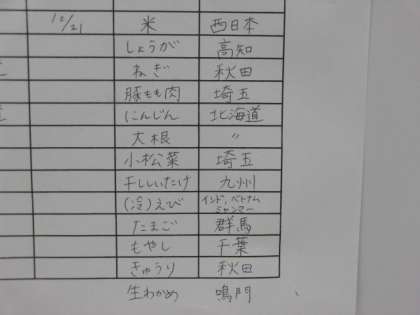 12/21 米 西日本
しょうが 高知
ねぎ 秋田
豚もも肉 埼玉
にんじん 北海道
大根 〃
小松菜 埼玉
干ししいたけ 九州
(冷)えび インド、ベトナム
ミャンマー
たまご 群馬
もやし 千葉
きゅうり 秋田
生わかめ 鳴門